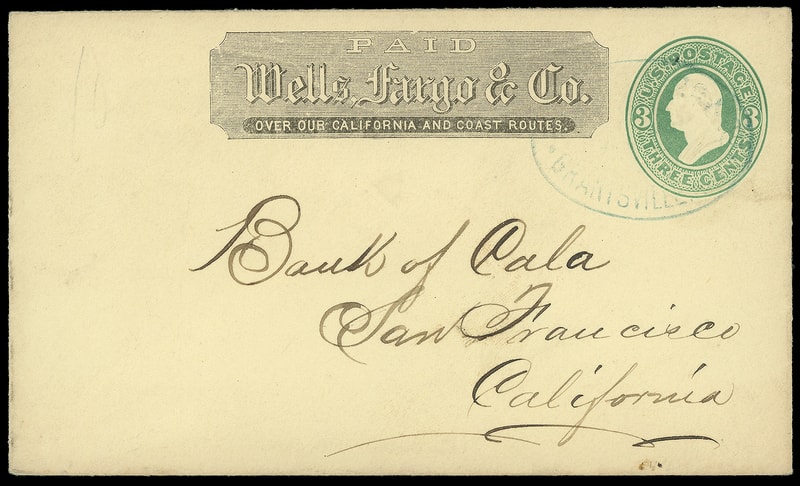 PAID
Wells, Fargo & Co.
OVER OUR CALIFORNIA AND COAST ROUTES.
U.S. POSTAGE
3 3
THREE CENTS
GRANTSVILLE
Bank of Cala
San Francisco
California